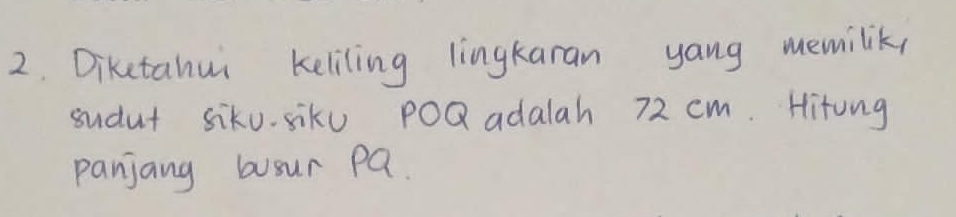 2. Diketahui keliling lingkaran yang memiliki
sudut siku-siku POQ adalah 72 cm. Hitung
panjang busur PQ.